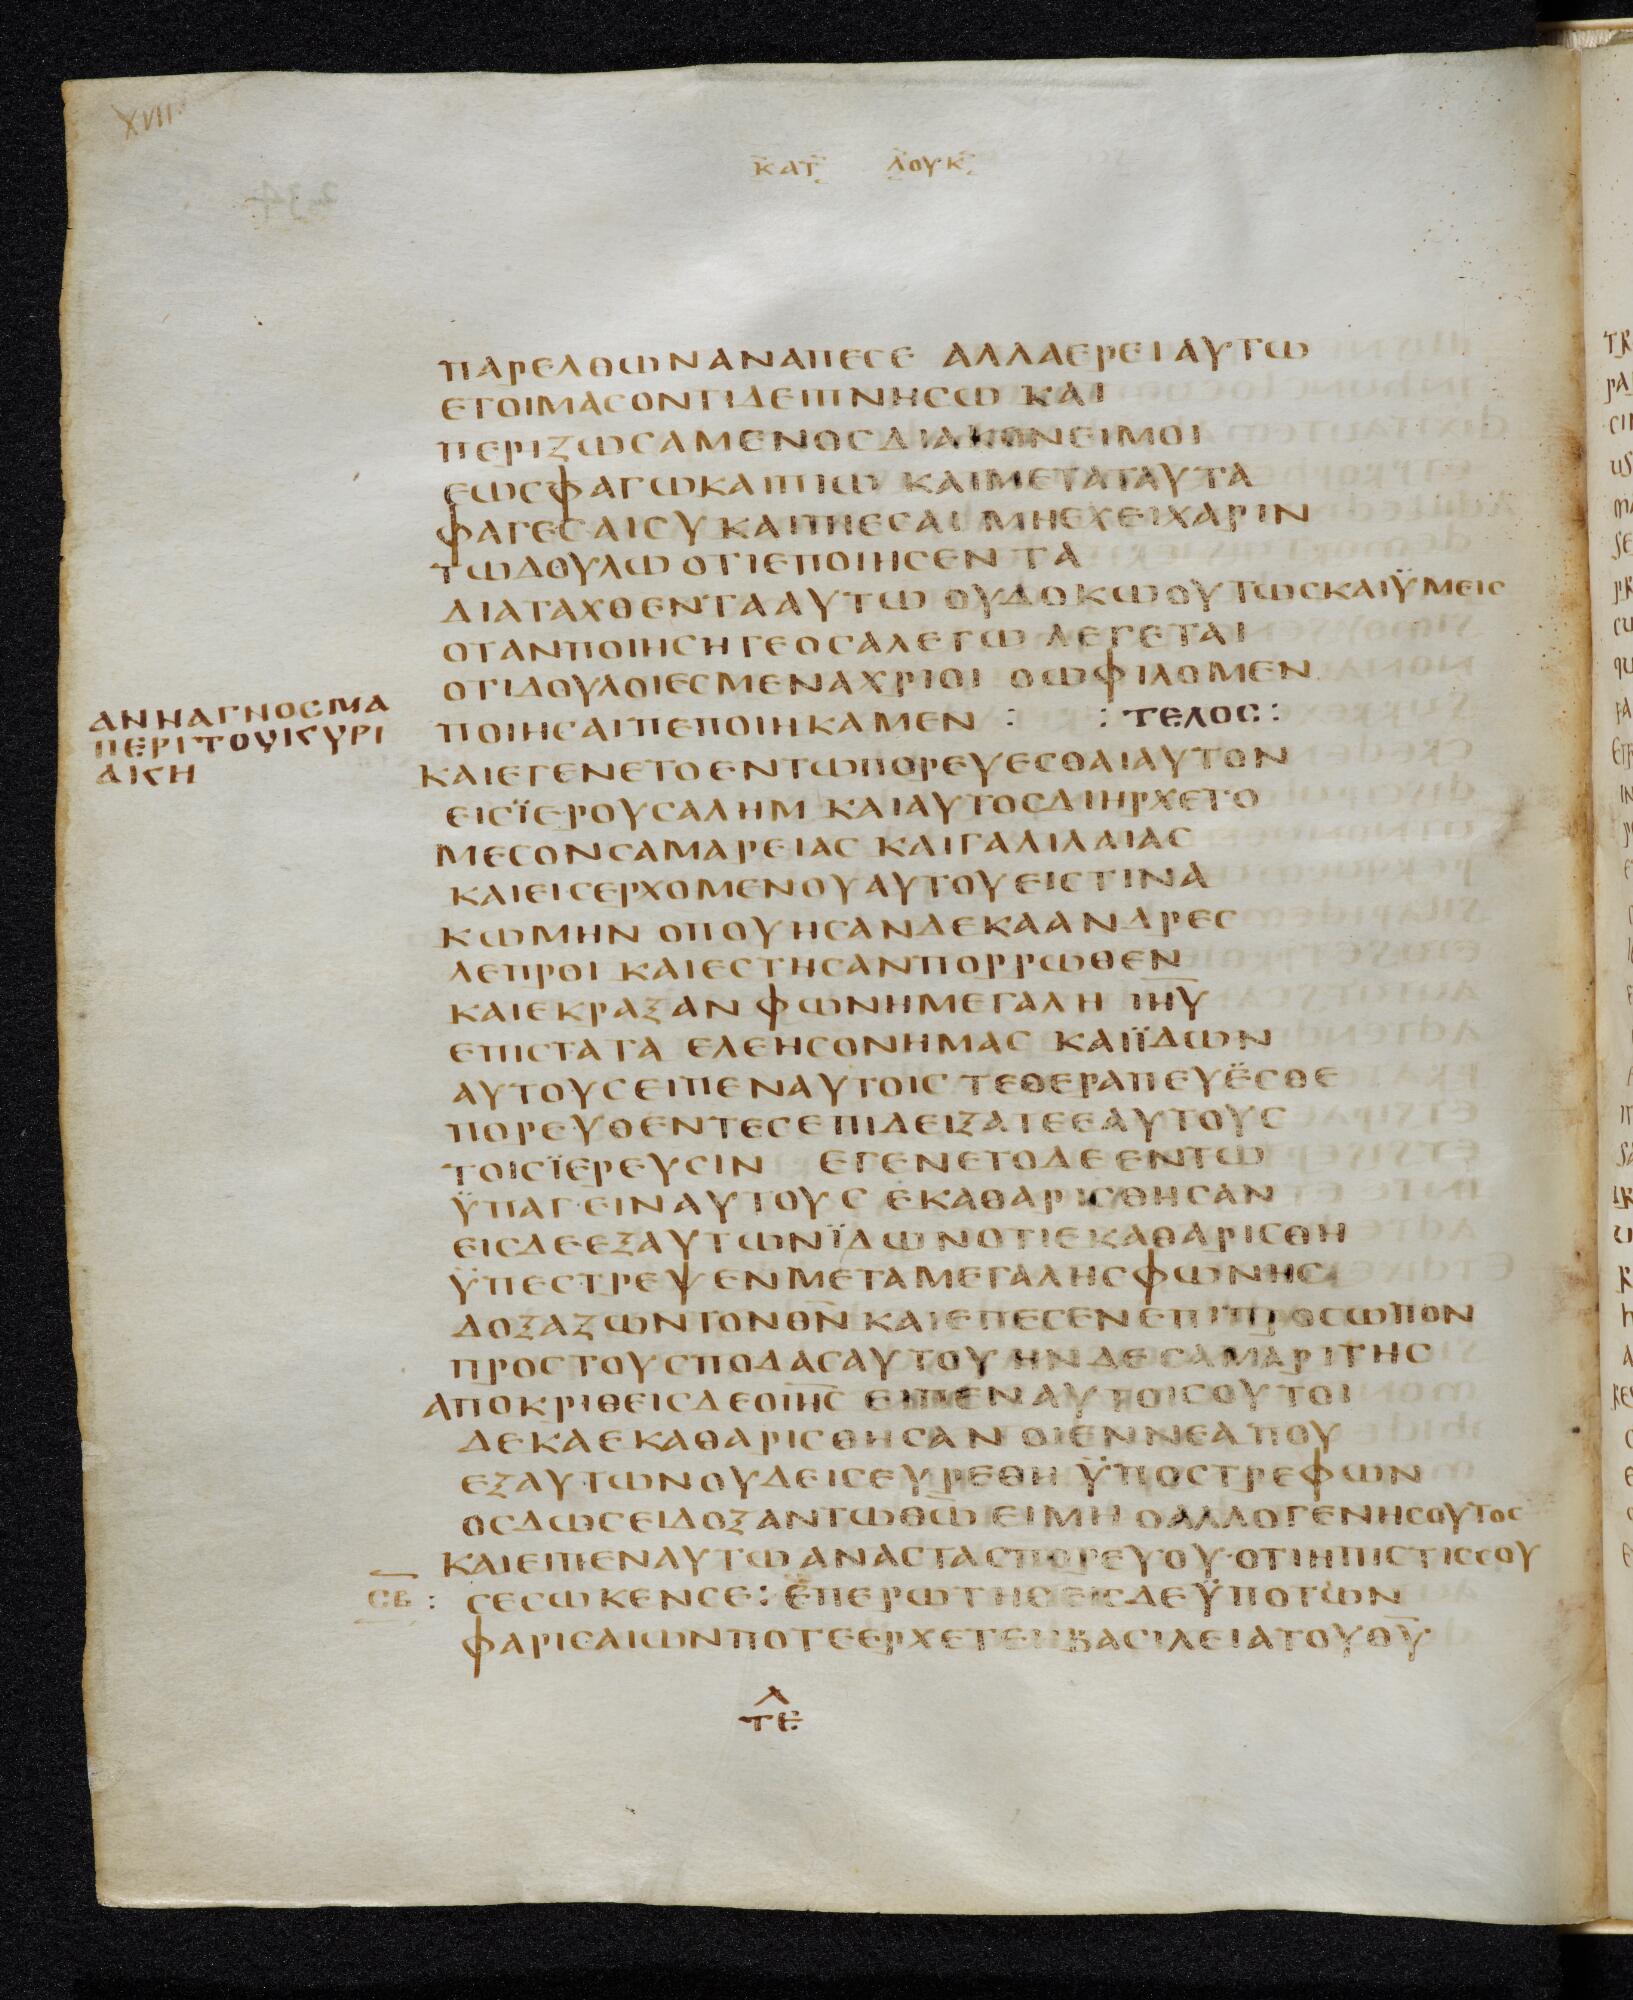 XVII
ΚΑΤ ΛΟΥΚ
ΠΑΡΕΛΘΩΝΑΝΑΠΕСΕ ΑΛΛΑΕΡΕΙΑΥΤΩ
ΕΤΟΙΜΑСΟΝΤΙΔΕΙΠΝΗСΩ ΚΑΙ
ΠΕΡΙΖΩСΑΜΕΝΟСΔΙΑΚΟΝΕΙΜΟΙ
ΕΩСΦΑΓΩΚΑΙΠΙΩ ΚΑΙΜΕΤΑΤΑΥΤΑ
ΦΑΓΕСΑΙСΥΚΑΙΠΙΕСΑΙ ΜΗΕΧΕΙΧΑΡΙΝ
ΤΩΔΟΥΛΩ ΟΤΙΕΠΟΙΗСΕΝ ΤΑ
ΔΙΑΤΑΧΘΕΝΤΑΑΥΤΩ ΟΥΔΟΚΩΟΥΤΩСΚΑΙΫΜΕΙС
ΟΤΑΝΠΟΙΗСΗΤΕΟСΑΛΕΓΩ ΛΕΓΕΤΑΙ
ΟΤΙΔΟΥΛΟΙΕСΜΕΝΑΧΡΙΟΙ ΟΩΦΙΛΟΜΕΝ
ΠΟΙΗСΑΙΠΕΠΟΙΗΚΑΜΕΝ : : ΤΕΛΟС :
ΑΝΝΑΓΝΟСΜΑ
ΠΕΡΙΤΟΥΚΥΡΙ
ΑΚΗ
ΚΑΙΕΓΕΝΕΤΟΕΝΤΩΠΟΡΕΥΕСΘΑΙΑΥΤΟΝ
ΕΙСΪΕΡΟΥСΑΛΗΜ ΚΑΙΑΥΤΟСΔΙΗΡΧΕΤΟ
ΜΕСΟΝСΑΜΑΡΕΙΑС ΚΑΙΓΑΛΙΛΑΙΑС
ΚΑΙΕΙСΕΡΧΟΜΕΝΟΥΑΥΤΟΥΕΙСΤΙΝΑ
ΚΩΜΗΝ ΟΠΟΥΗСΑΝΔΕΚΑΑΝΔΡΕС
ΛΕΠΡΟΙ ΚΑΙΕСΤΗСΑΝΠΟΡΡΩΘΕΝ
ΚΑΙΕΚΡΑΞΑΝ ΦΩΝΗΜΕΓΑΛΗ ΙΗΥ
ΕΠΙСΤΑΤΑ ΕΛΕΗСΟΝΗΜΑС ΚΑΙΪΔΩΝ
ΑΥΤΟΥСΕΙΠΕΝΑΥΤΟΙС ΤΕΘΕΡΑΠΕΥΕСΘΕ
ΠΟΡΕΥΘΕΝΤΕСΕΠΙΔΕΙΞΑΤΕΕΑΥΤΟΥС
ΤΟΙСΪΕΡΕΥСΙΝ ΕΓΕΝΕΤΟΔΕΕΝΤΩ
ΫΠΑΓΕΙΝΑΥΤΟΥС ΕΚΑΘΑΡΙСΘΗСΑΝ
ΕΙСΔΕΕΞΑΥΤΩΝΪΔΩΝΟΤΙΕΚΑΘΑΡΙСΘΗ
ΫΠΕСΤΡΕΨΕΝΜΕΤΑΜΕΓΑΛΗСΦΩΝΗС
ΔΟΞΑΖΩΝΤΟΝΘΝ ΚΑΙΕΠΕСΕΝΕΠΙΠΡΟСΩΠΟΝ
ΠΡΟСΤΟΥСΠΟΔΑСΑΥΤΟΥ ΗΝΔΕСΑΜΑΡΙΤΗС
ΑΠΟΚΡΙΘΕΙСΔΕΟΙΗС ΕΙΠΕΝΑΥΤΟΙСΟΥΤΟΙ
ΔΕΚΑΕΚΑΘΑΡΙСΘΗСΑΝ ΟΙΕΝΝΕΑΠΟΥ
ΕΞΑΥΤΩΝΟΥΔΕΙСΕΥΡΕΘΗ ΫΠΟСΤΡΕΦΩΝ
ΟСΔΩСΕΙΔΟΞΑΝΤΩΘΩ ΕΙΜΗ ΟΑΛΛΟΓΕΝΗСΟΥΤΟС
ΚΑΙΕΙΠΕΝΑΥΤΩ ΑΝΑСΤΑСΠΟΡΕΥΟΥ·ΟΤΙΗΠΙСΤΙССΟΥ
СΒ : СΕСΩΚΕΝСΕ: ΕΠΕΡΩΤΗΘΕΙСΔΕΫΠΟΤΩΝ
ΦΑΡΙСΑΙΩΝΠΟΤΕΕΡΧΕΤΕΗΒΑСΙΛΕΙΑΤΟΥΘΥ
Λ
ΤΕ